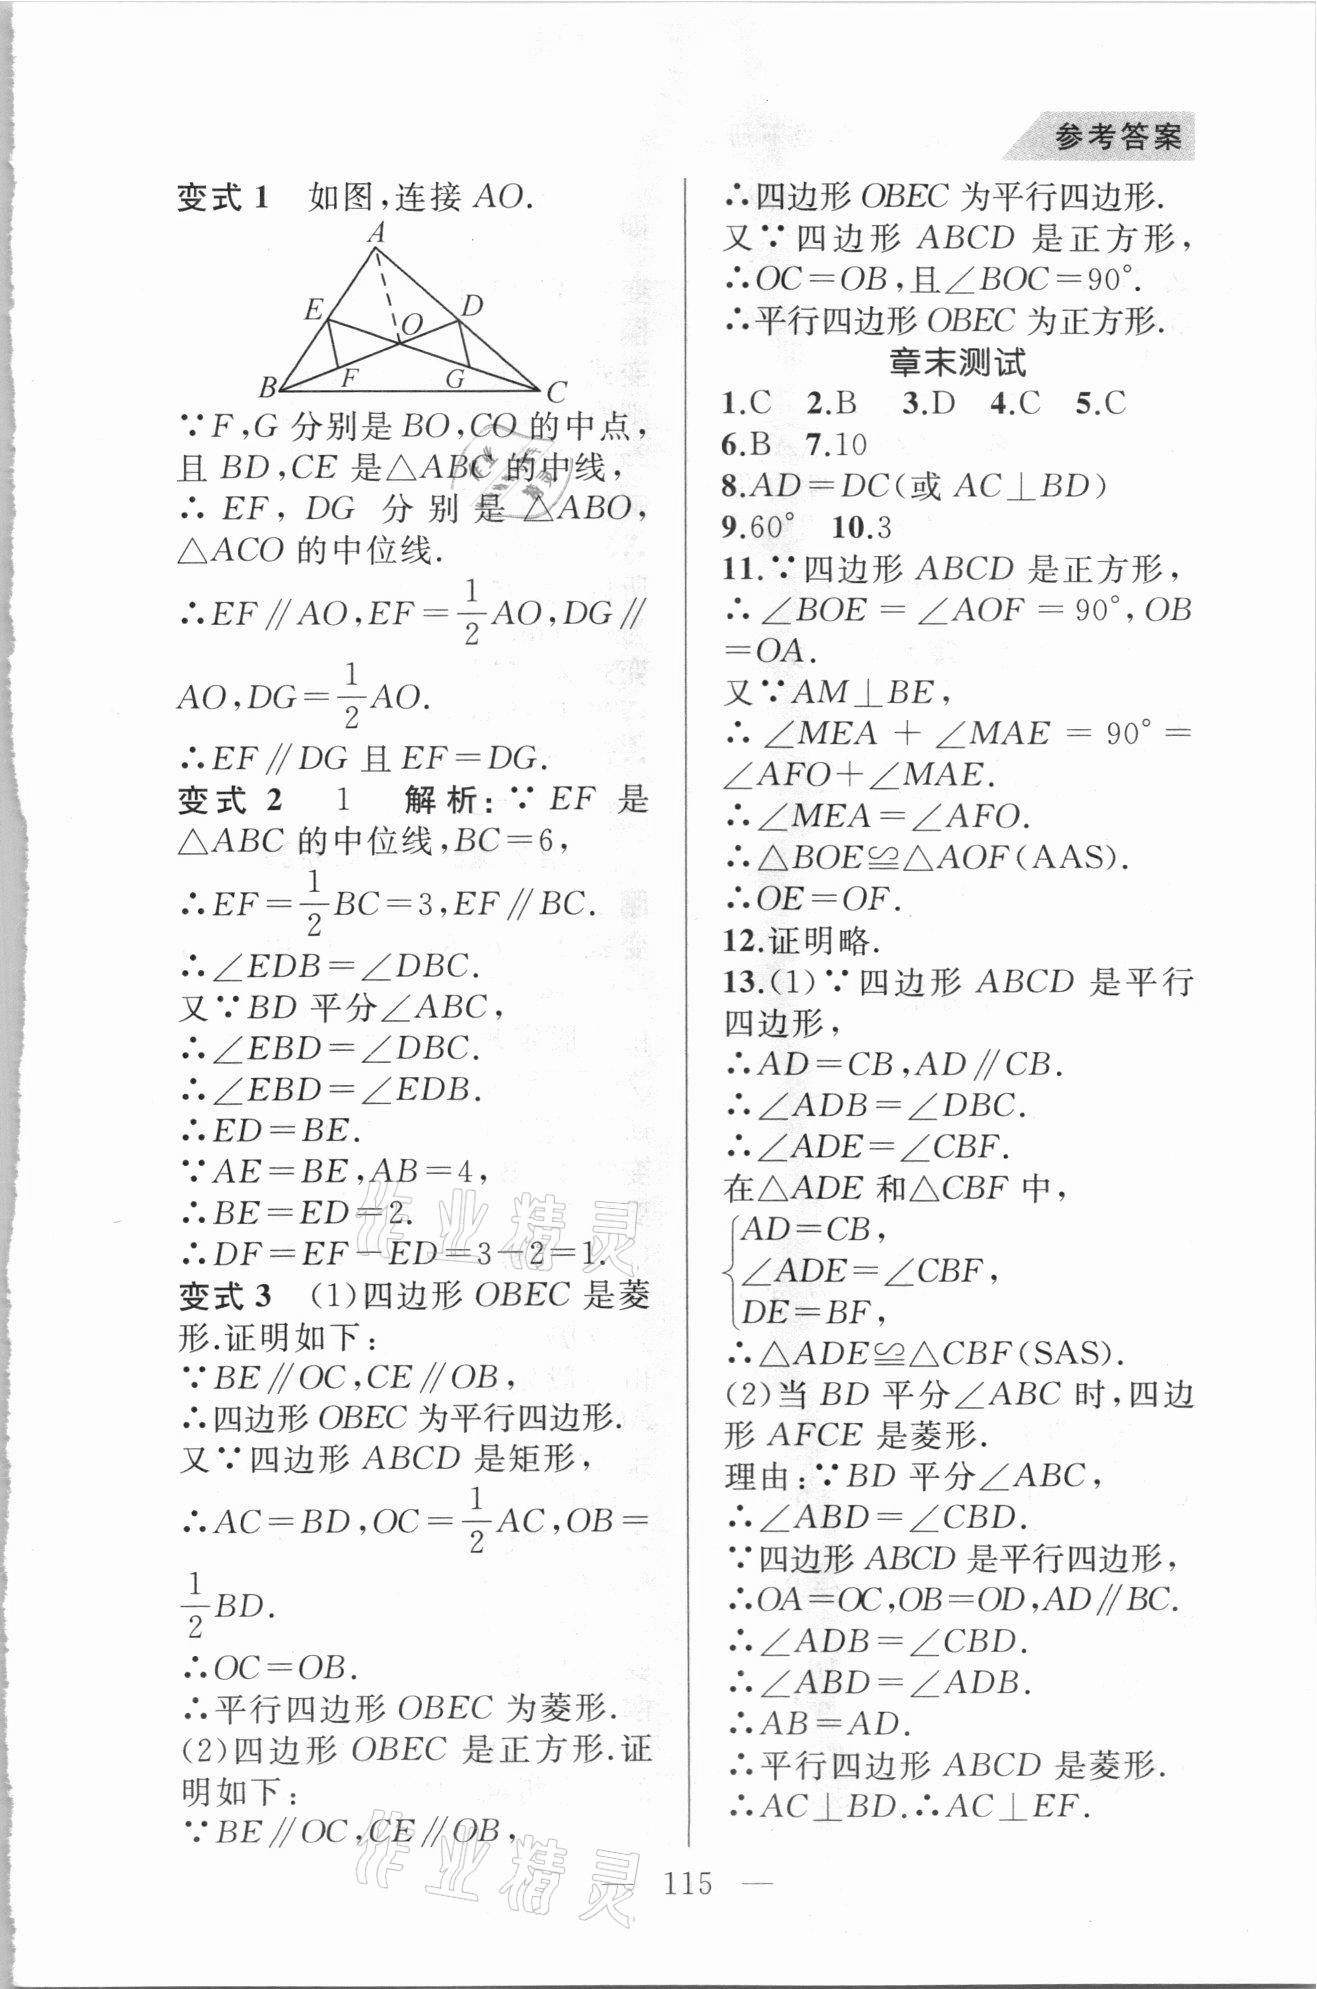 参考答案
变式 1 如图,连接 AO.
A
E
D
O
F
G
B
C
∵F,G 分别是 BO,CO 的中点,
且 BD,CE 是△ABC 的中线,
∴ EF, DG 分别是 △ABO,
△ACO 的中位线.
∴EF∥AO,EF=1/2AO,DG∥
AO,DG=1/2AO.
∴EF∥DG 且 EF=DG.
变式 2 1 解析:∵ EF 是
△ABC 的中位线,BC=6,
∴EF=1/2BC=3,EF∥BC.
∴∠EDB=∠DBC.
又∵BD 平分∠ABC,
∴∠EBD=∠DBC.
∴∠EBD=∠EDB.
∴ED=BE.
∵AE=BE,AB=4,
∴BE=ED=2.
∴DF=EF-ED=3-2=1.
变式 3 (1)四边形 OBEC 是菱
形.证明如下:
∵BE∥OC,CE∥OB,
∴四边形 OBEC 为平行四边形.
又∵四边形 ABCD 是矩形,
∴AC=BD,OC=1/2AC,OB=
1/2BD.
∴OC=OB.
∴平行四边形 OBEC 为菱形.
(2)四边形 OBEC 是正方形.证
明如下:
∵BE∥OC,CE∥OB,
∴四边形 OBEC 为平行四边形.
又∵四边形 ABCD 是正方形,
∴OC=OB,且∠BOC=90°.
∴平行四边形 OBEC 为正方形.
章末测试
1.C 2.B 3.D 4.C 5.C
6.B 7.10
8.AD=DC(或 AC⊥BD)
9.60° 10.3
11.∵四边形 ABCD 是正方形,
∴∠BOE=∠AOF=90°,OB
=OA.
又∵AM⊥BE,
∴∠MEA+∠MAE=90°=
∠AFO+∠MAE.
∴∠MEA=∠AFO.
∴△BOE≌△AOF(AAS).
∴OE=OF.
12.证明略.
13.(1)∵四边形 ABCD 是平行
四边形,
∴AD=CB,AD∥CB.
∴∠ADB=∠DBC.
∴∠ADE=∠CBF.
在△ADE 和△CBF 中,
AD=CB,
∠ADE=∠CBF,
DE=BF,
∴△ADE≌△CBF(SAS).
(2)当 BD 平分∠ABC 时,四边
形 AFCE 是菱形.
理由:∵BD 平分∠ABC,
∴∠ABD=∠CBD.
∵四边形 ABCD 是平行四边形,
∴OA=OC,OB=OD,AD∥BC.
∴∠ADB=∠CBD.
∴∠ABD=∠ADB.
∴AB=AD.
∴平行四边形 ABCD 是菱形.
∴AC⊥BD.∴AC⊥EF.
作业精灵
作业精灵
— 115 —